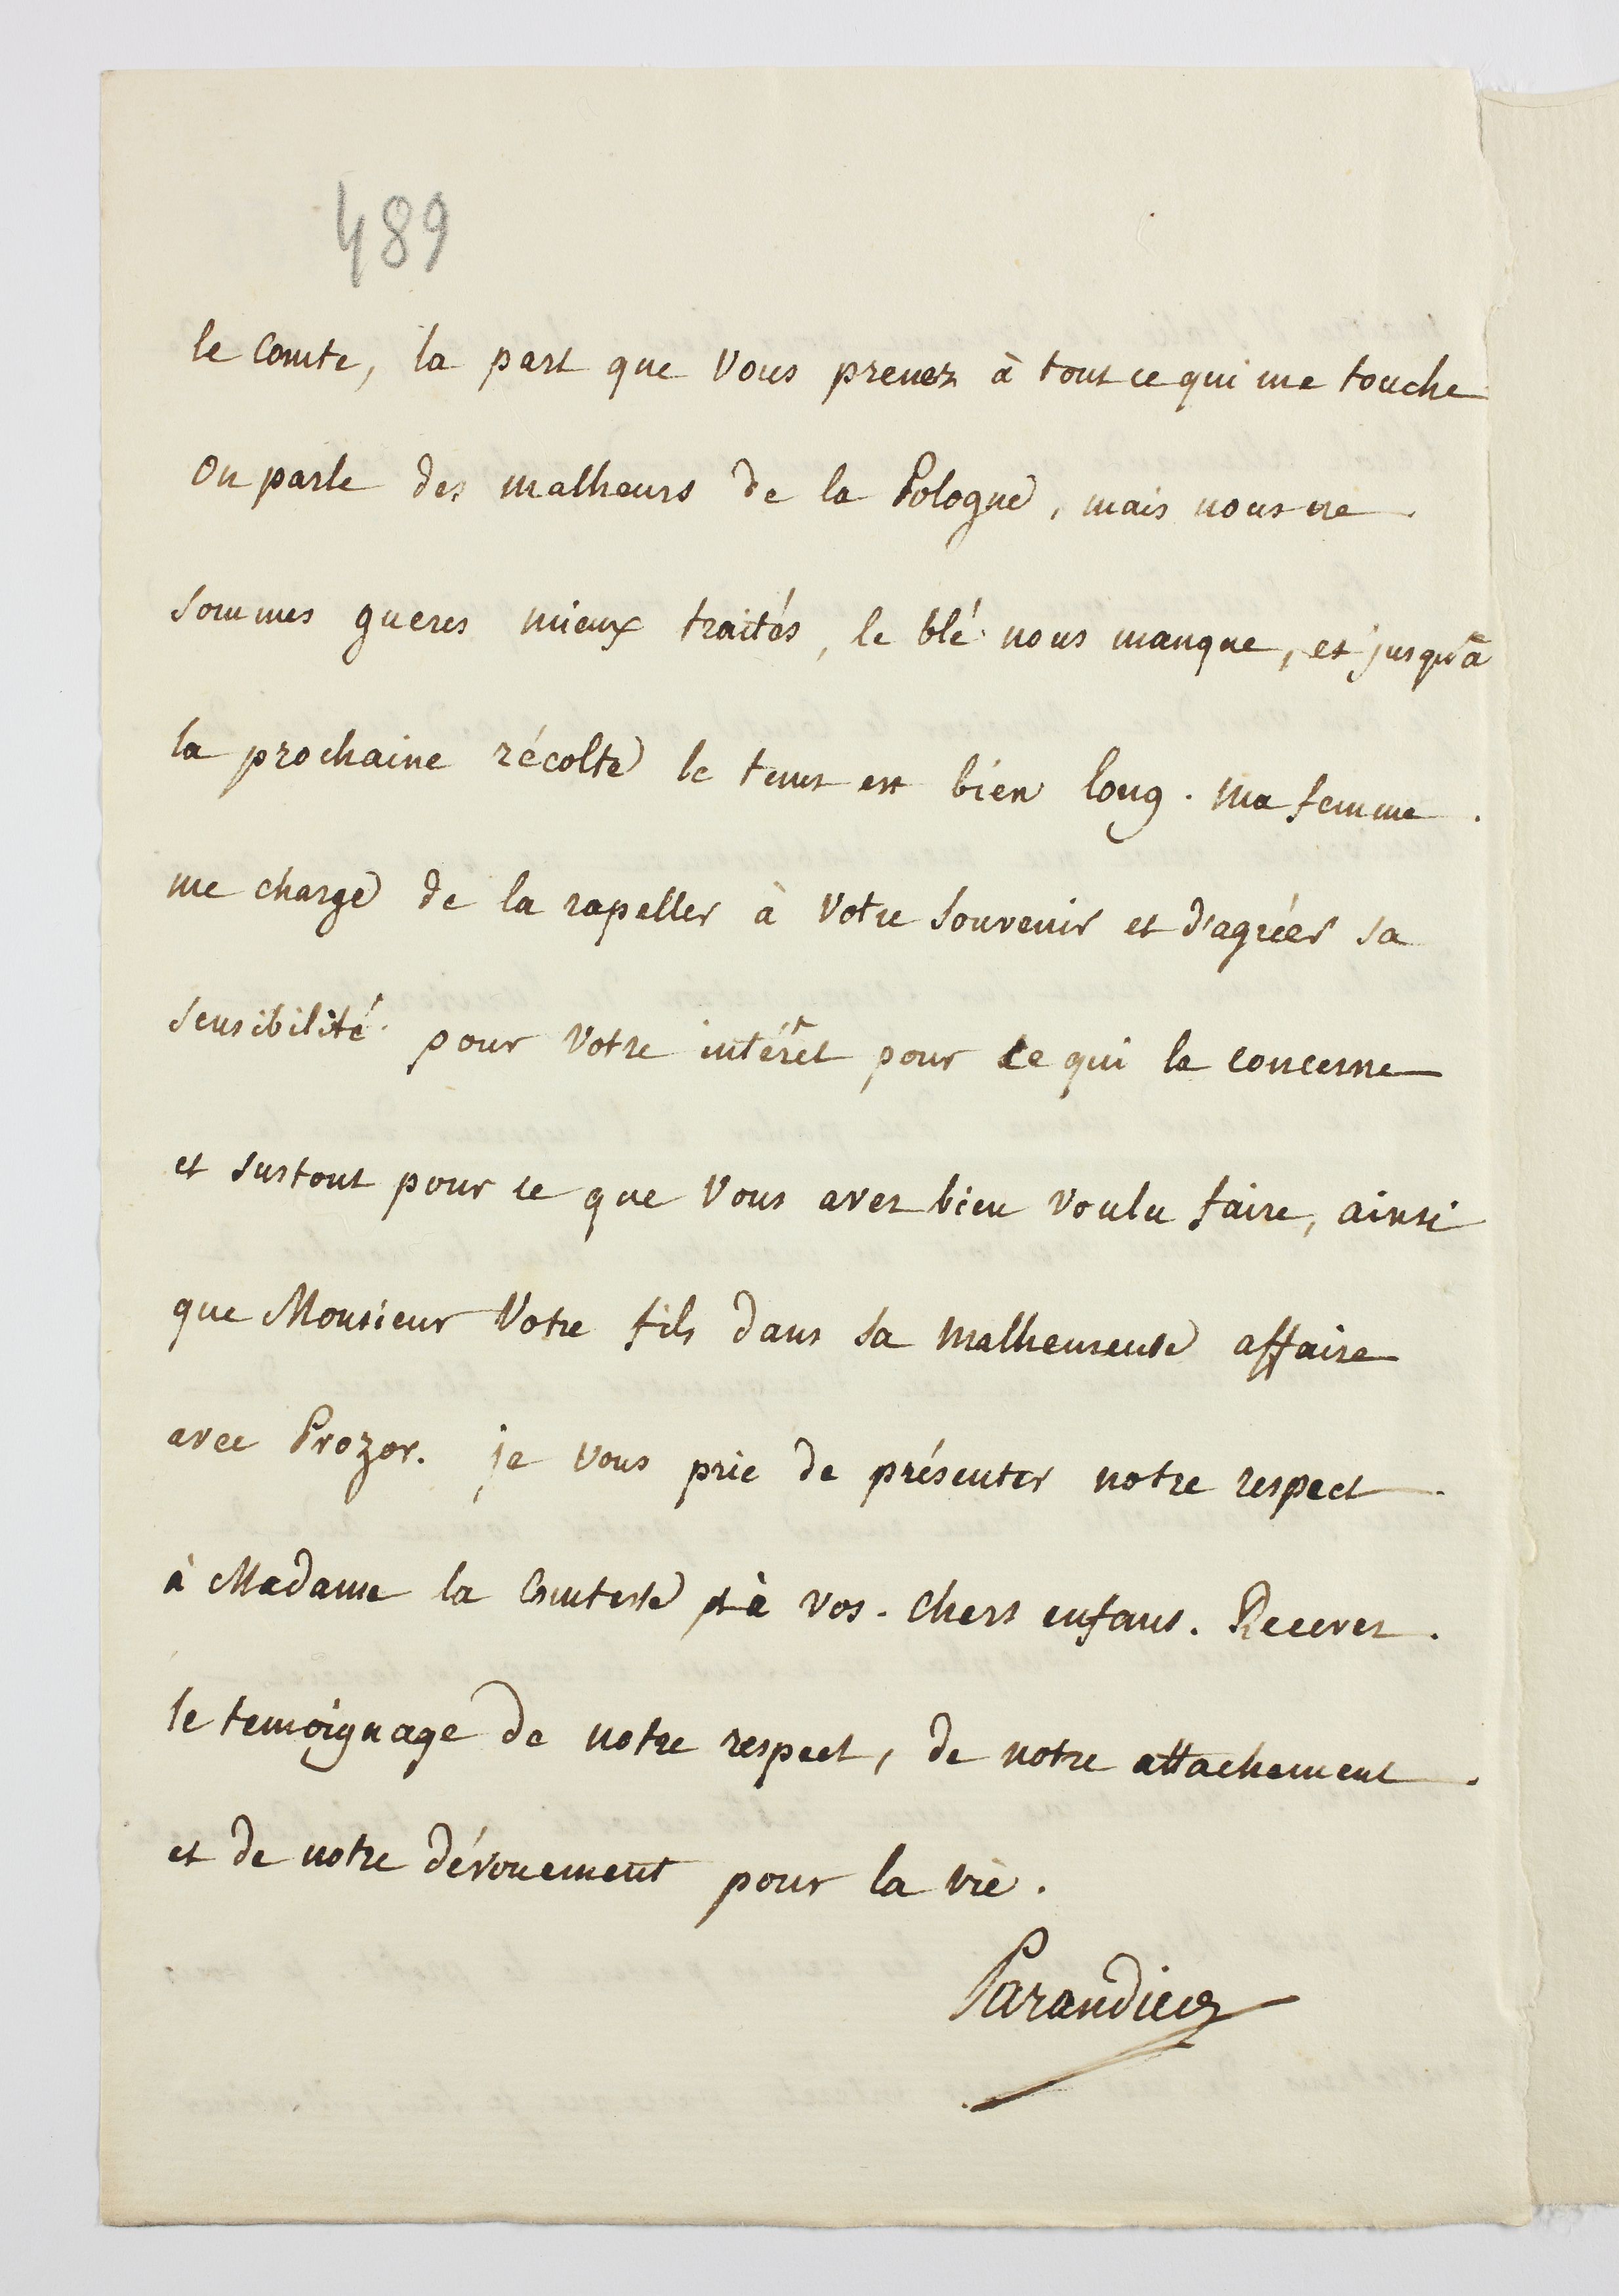 489
le Comte, la part que Vous prenez à tout ce qui me touche
On parle des malheurs de la Pologne, mais nous ne
sommes gueres mieux traités, le blé nous manque, et jusqu'à
la prochaine récolte le tems est bien long. Ma femme
me charge de la rapeller à Votre Souvenir et d'agréer sa
sensibilité pour Votre intérêt pour ce qui la concerne
et surtout pour ce que Vous avez bien Voulu faire, ainsi
que Monsieur Votre fils dans sa malheureuse affaire
avec Prozor. je Vous prie de présenter notre respect
à Madame la Comtesse et à vos chers enfans. Recevez
le temoignage de notre respect, de notre attachement
et de notre dévouement pour la vie.
Parandier